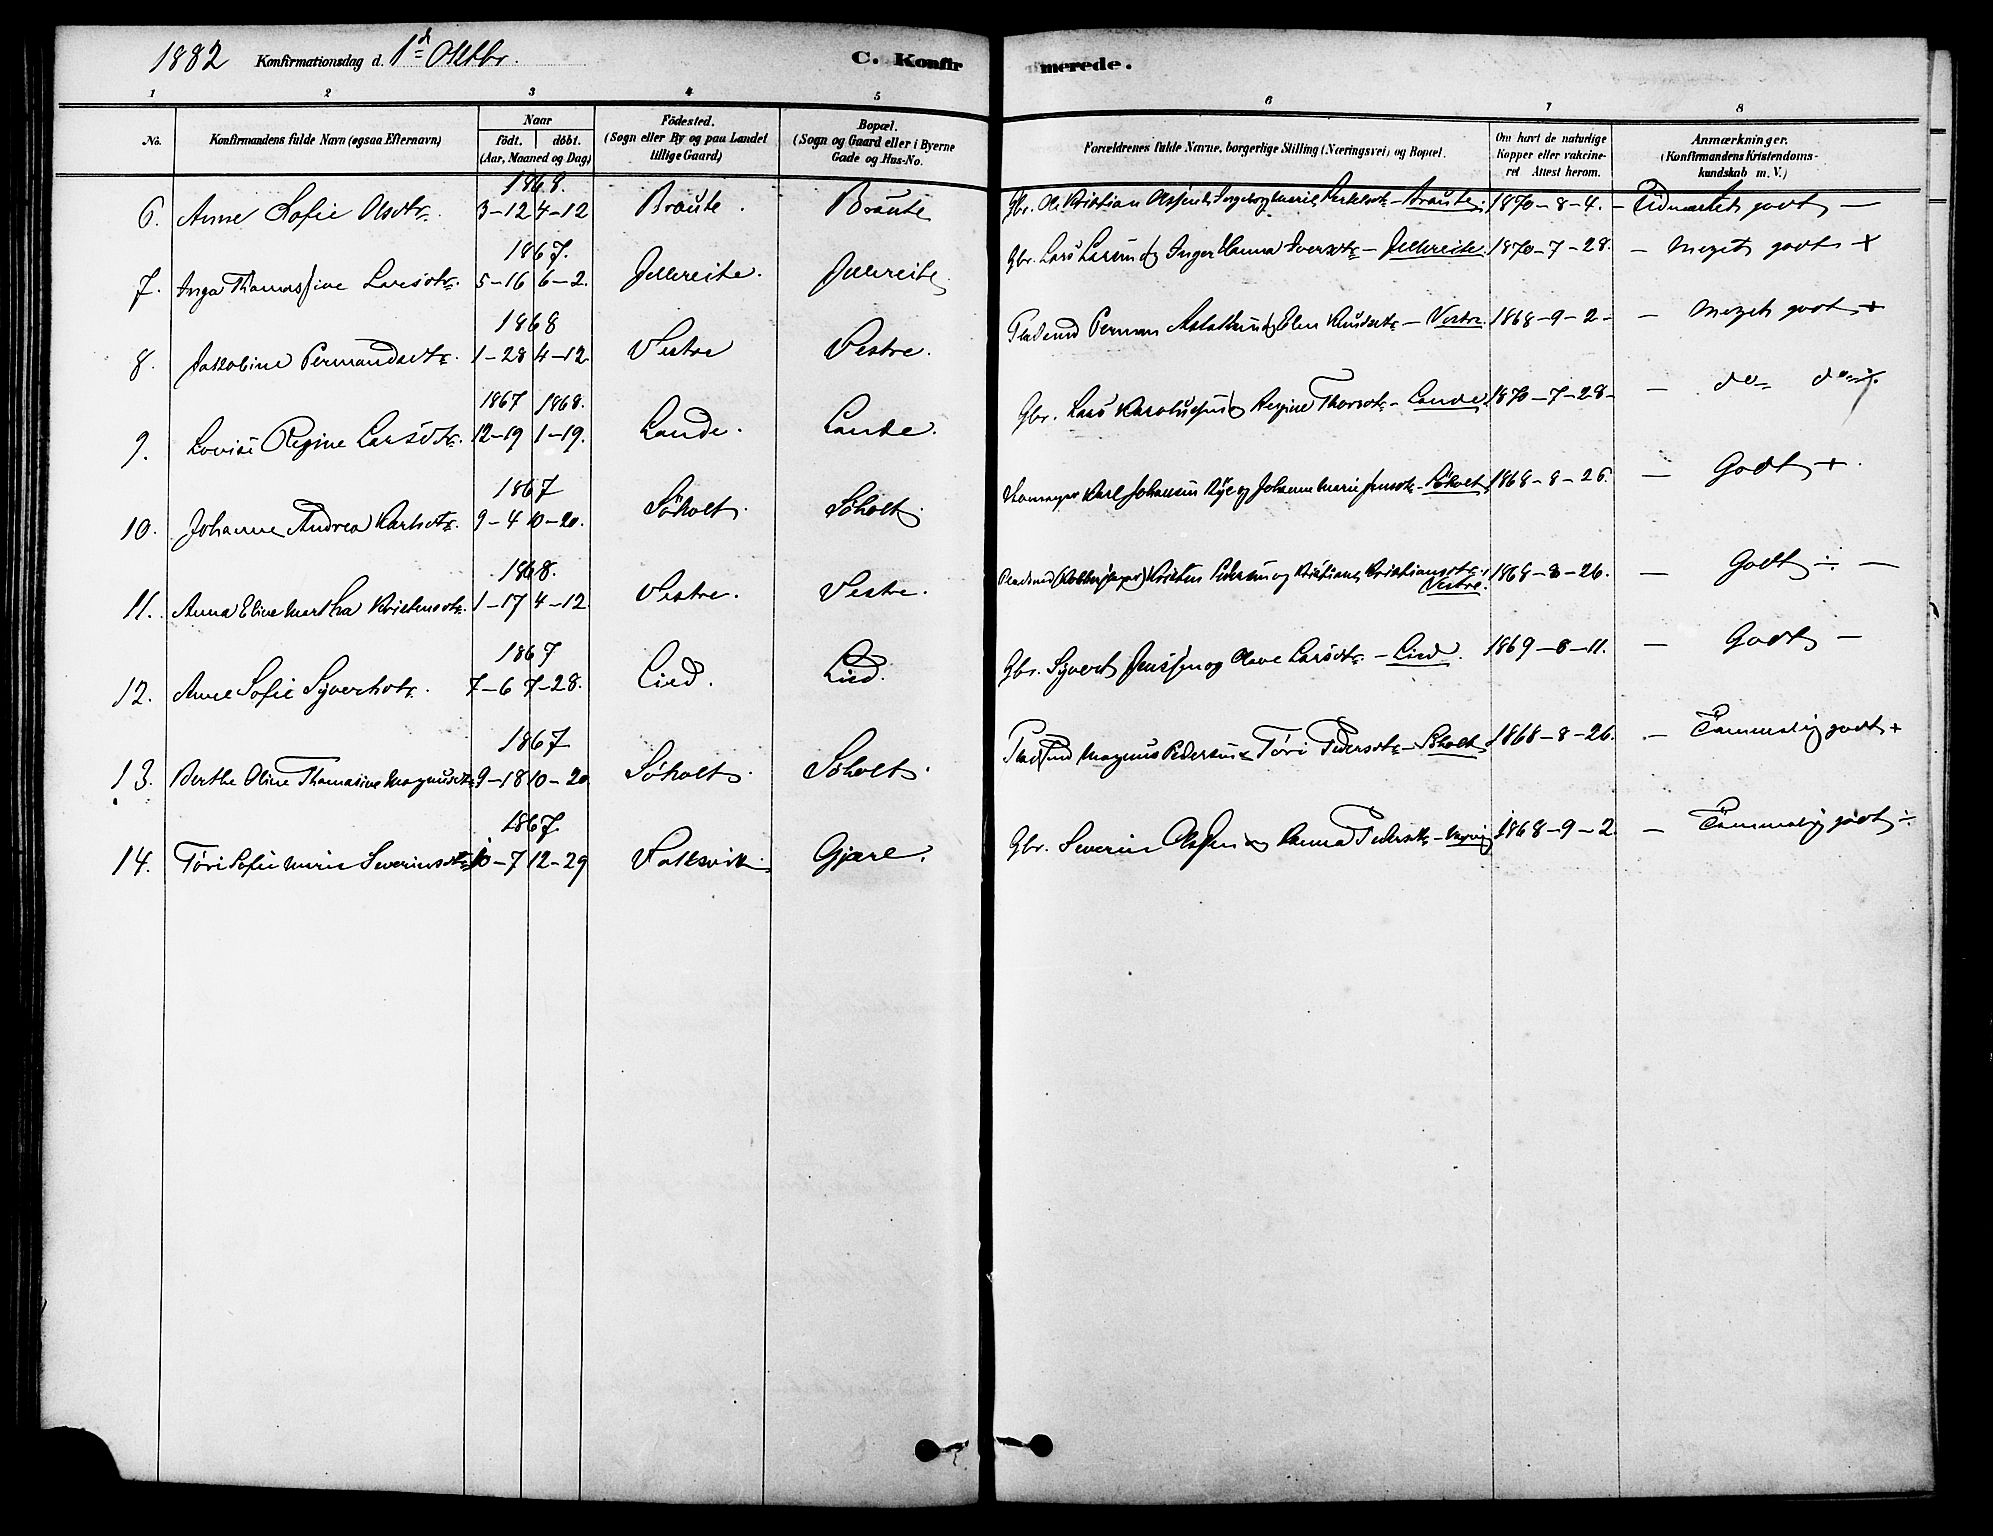 1882 Konfirmationsdag d. 1ste Oktbr.
C. Konfir merede.
1 2 3 4 5 6 7 8
No. Konfirmandens fulde Navn (ogsaa Efternavn) Naar født. døbt. (Aar, Maaned og Dag) Födested. (Sogn eller By og paa Landet tillige Gaard) Bopæl. (Sogn og Gaard eller i Byerne Gade og Hus-No. Forældrenes fulde Navne, borgerlige Stilling (Næringsvei) og Bopæl. Om havt de naturlige Kopper eller vakcineret Attest herom. Anmærkninger. (Konfirmandens Kristendomskundskab m. V.)
1868.
6. Anne Sofie Olsdtr. 3-12 4-12 Braute. Braute Gbr. Ole Kristian Ingeborg Marie Braute. 1870-8-4. - godt -
1867.
7. Inga Thomassine Larsdtr. 5-16 6-2. Jellereite. Jellereite Gbr. Lars Larsen og Inger Hanna Iversdtr - Jellereite 1870-7-28. - Meget godt +
1868
8. Jakobine Permandsdtr. 1-28 4-12. Vestre Vestre. Pladsmd Perman og Elen Knudsdtr - Vestre. 1868-9-2- - Meget godt +
1867 1868.
9. Lovise Regine Larsdtr. 12-19 1-19. Lande. Lande. Gbr. Lars og Regine Thorsdtr - Lande 1870-7-28- - do
1867
10. Johanne Andrea Karlsdtr. 9-4 10-20. Søholt. Søholt. Karl Johansen og Johanne Marie Jensdtr - Søholt. 1868-8-26. - Godt +.
1868.
11. Anna Eline Martha Kristensdtr. 1-17 4-12. Vestre. Vestre. Kristen Pedersen og Kristiane Kristiansdtr Vestre. 1868-8-26. - Godt ÷ -
1867
12. Anne Sofie Syvertsdtr. 7-6 7-28. Lied. Lied. Gbr. Syvert Jenssen og Olave Larsdtr - Lied. 1869-8-11. - Godt -
1867
13. Berthe Oline Thomasine Magnusdtr 9-18 10-20 Søholt. Søholt. Magnus Pedersen Tøri Pedersdtr - Søholt. 1868-8-26. - Temmelig godt +
1867.
14. Tøri Sofie Marie Severinsdtr 10-7 12-29 Gjære. Gbr. Severin Olsen og Hanna Pedersdtr 1868-9-2. - Temmelig godt ÷